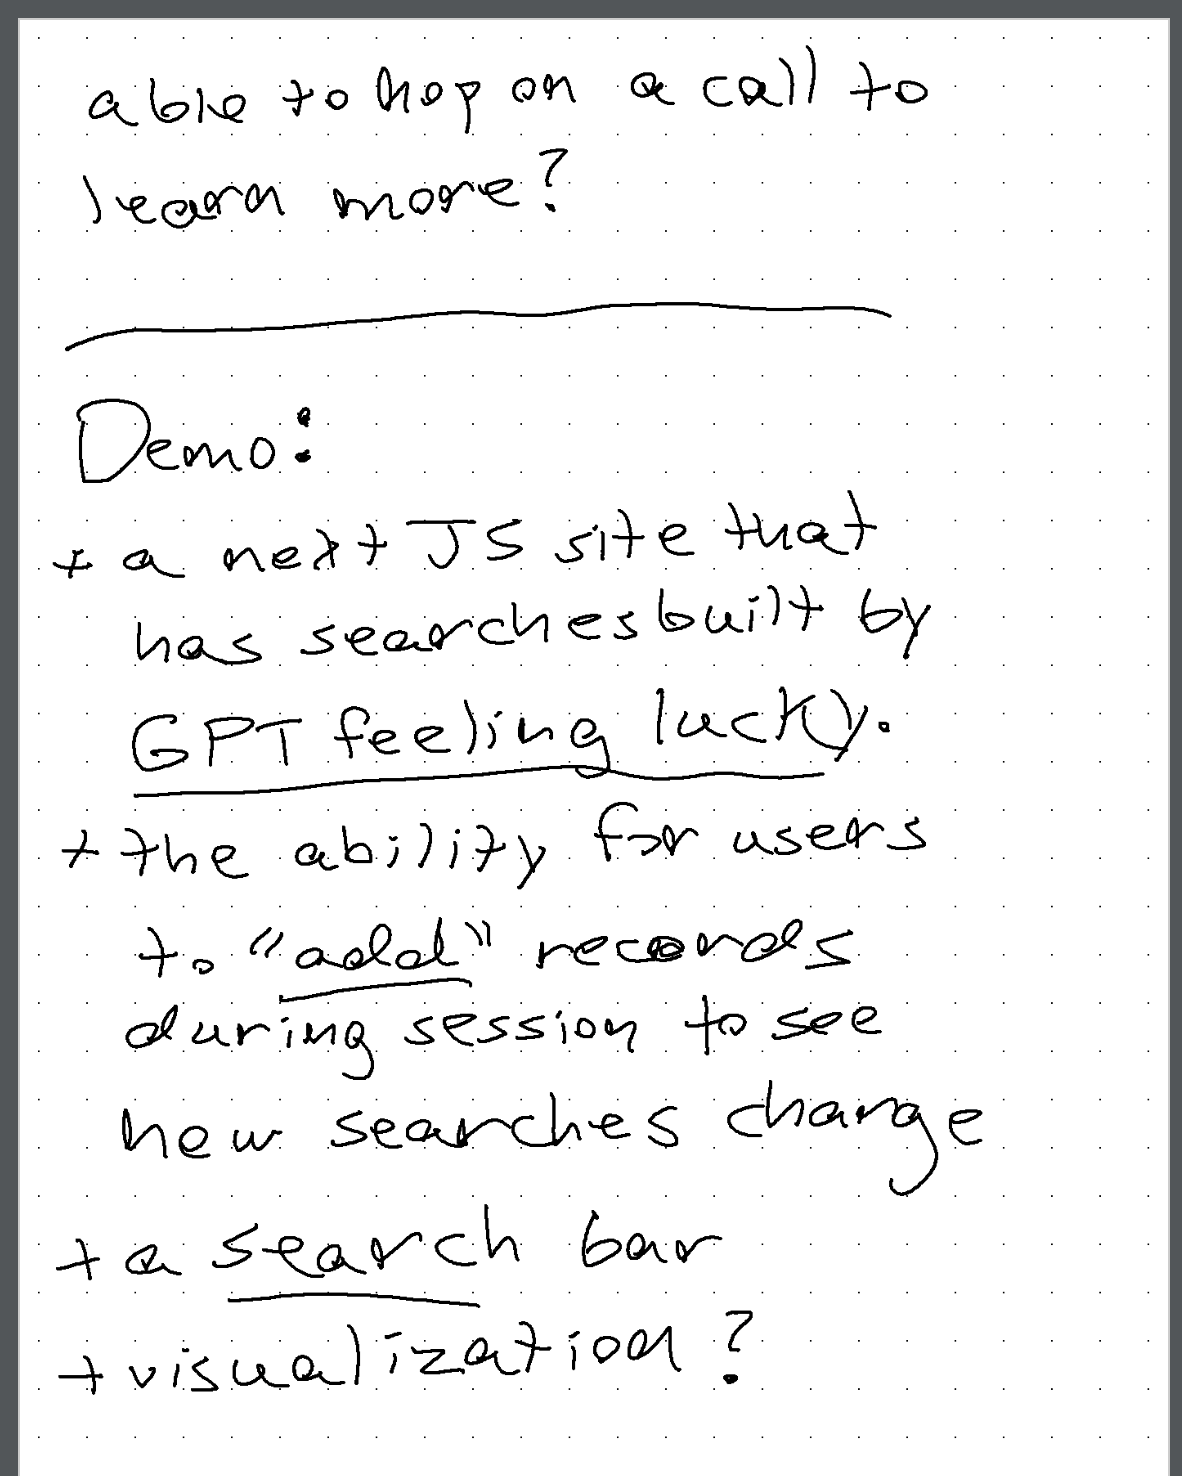 able to hop on a call to
learn more?
Demo:
+ a next JS site that
has searches built by
GPT feeling lucky.
+ the ability for users
to "add" records
during session to see
how searches change
+ a search bar
+ visualization?